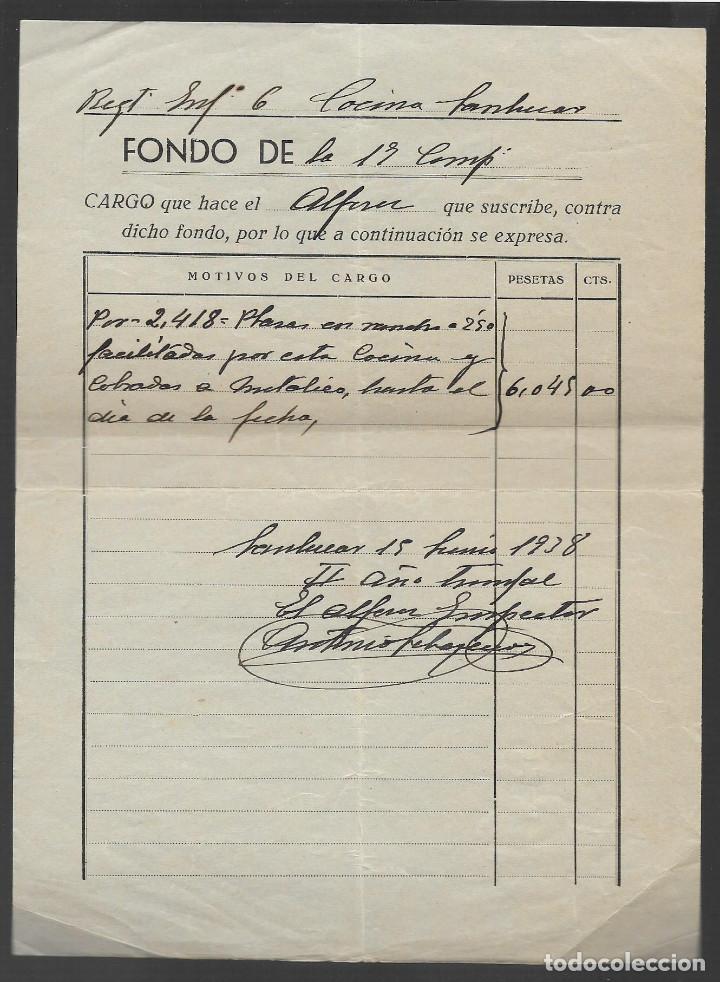 Regt Infª 6 Cocina Sanlucar
FONDO DE la 1ª Compª
CARGO que hace el Alferez que suscribe, contra
dicho fondo, por lo que a continuación se expresa.
MOTIVOS DEL CARGO PESETAS CTS.
Por = 2,418 = Plazas en rancho a 2'50
facilitadas por esta Cocina y
Cobradas a Metalico, hasta el 6,045 00
dia de la fecha,
Sanlucar 15 Junio 1938
II año Triunfal
El alferez Inspector
Antonio
todocoleccion